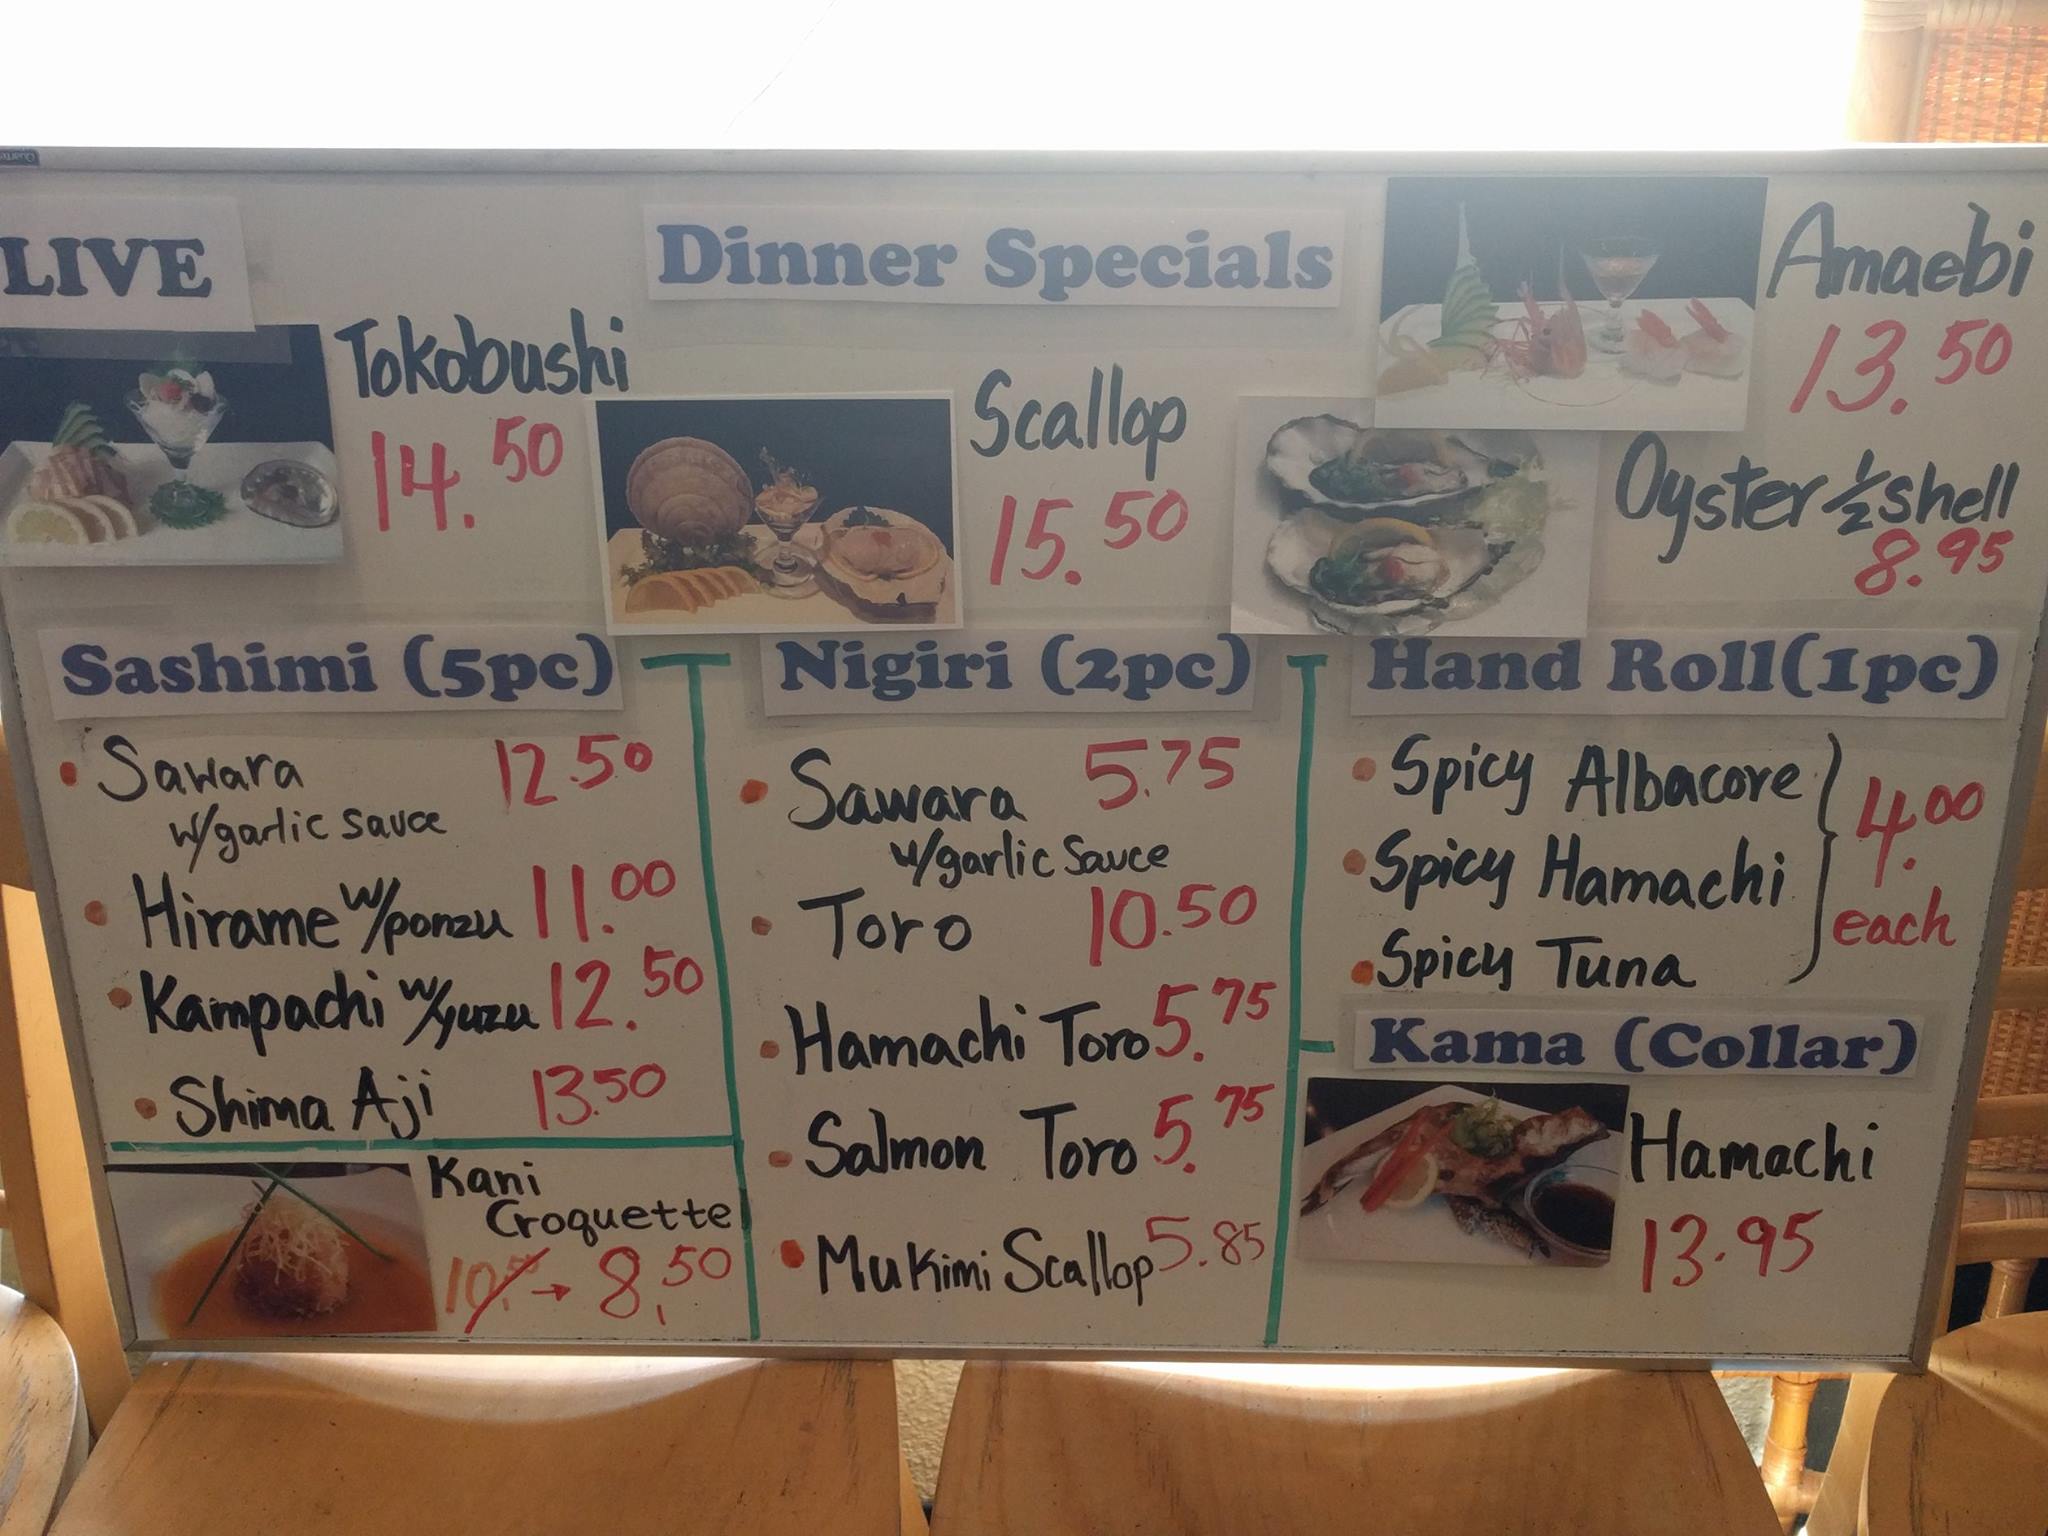 Quartet
LIVE
Dinner Specials
Tokobushi
14.50
Scallop
15.50
Amaebi
13.50
Oyster 1/2 shell
8.95
Sashimi (5pc)
Sawara 12.50
w/garlic sauce
Hirame w/ponzu 11.00
Kampachi w/yuzu 12.50
Shima Aji 13.50
Kani
Croquette
10.50 → 8.50
Nigiri (2pc)
Sawara 5.75
w/garlic Sauce
Toro 10.50
Hamachi Toro 5.75
Salmon Toro 5.75
Mukimi Scallop 5.85
Hand Roll(1pc)
Spicy Albacore
Spicy Hamachi
Spicy Tuna
4.00
each
Kama (Collar)
Hamachi
13.95